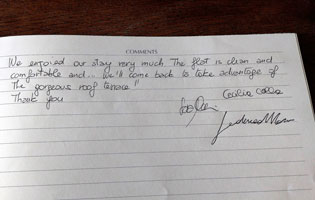 COMMENTS
We enjoyed our stay very much. The flat is clean and
comfortable and... we'll come back to take advantage of
The gorgeous roof terrace!!
Thank you
Cecilia